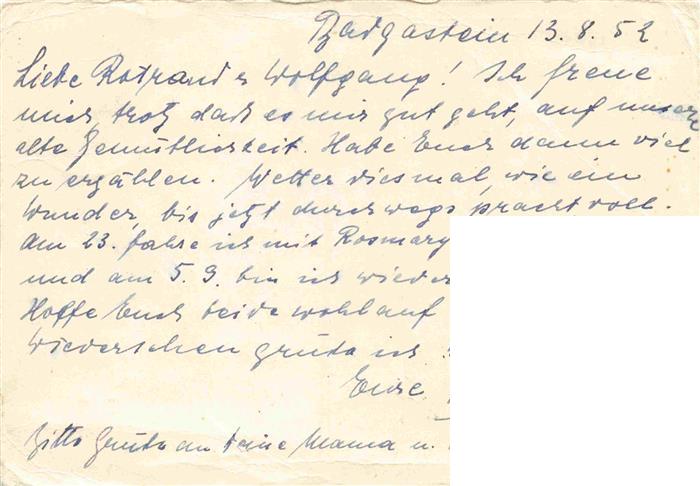 Badgastein 13.8.52
Liebe Rotraud & Wolfgang! Ich freue
mich, trotz daß es mir gut geht, auf unsere
alte Gemütlichkeit. Habe Euch dann viel
zu erzählen. Wetter diesmal wie ein
Wunder, bis jetzt durchwegs prachtvoll.
Am 23. fahre ich mit Rosmary
und am 5.9. bin ich wieder
Hoffe Euch beide wohlauf
Wiedersehen grüße ich
Eure
Bitte Grüße an Deine Mama u.